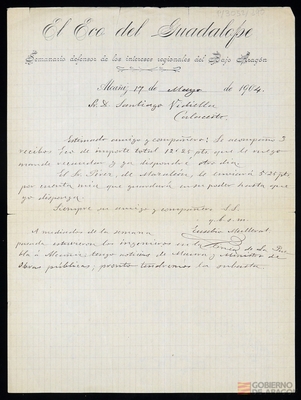 El Eco del Guadalope
Semanario defensor de los intereses regionales del Bajo Aragón
Alcañiz, 17 de Mayo de 1904.
Sr. D. Santiago Vidiella
Calaceite.
Estimado amigo y compañero: Le acompaño 3
recibos Eco de importe total 12'25 pts que le ruego
mande recaudar y ya dispondré otro día.
El Sr. de Mazaleón, le enviará 5'25 pts
por cuenta mia que guardará en su poder hasta que
yo disponga.
Siempre su amigo y compañero S.S.
q. b. s. m.
A mediados de la semana
pasada estuvieron los ingenieros en la línea de La Pue-
bla á Alcañiz. Tengo noticias de Maura y Ministro de
Obras públicas; pronto tendremos la subasta.
GOBIERNO
DE ARAGON